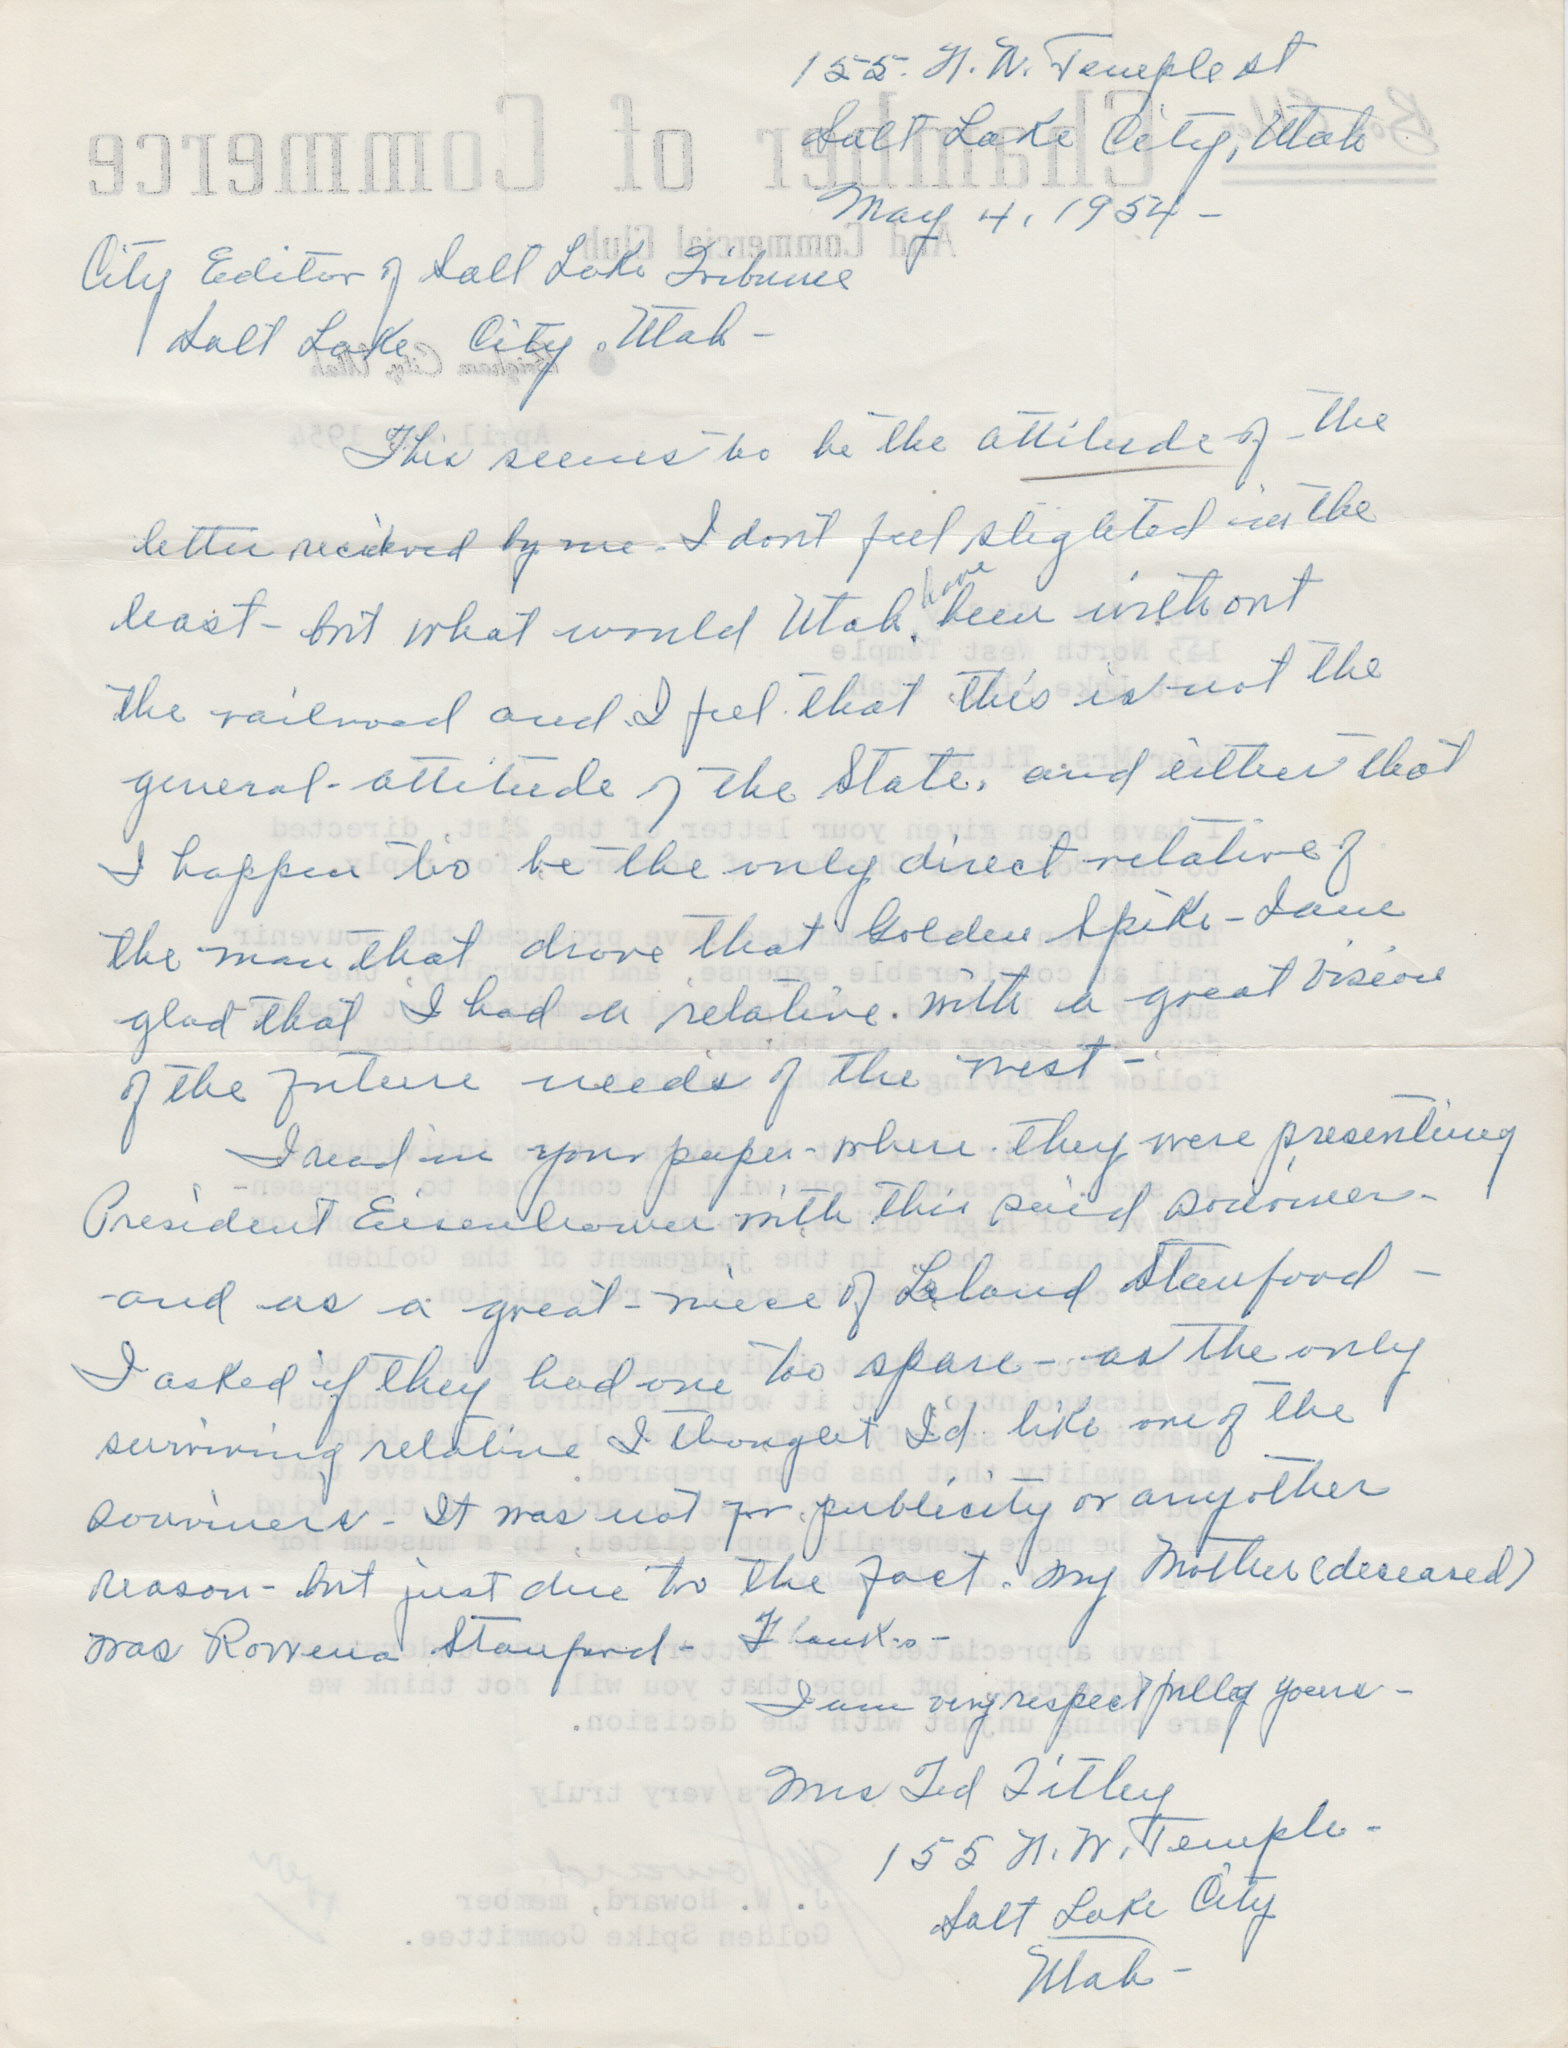 155. N. W. Temple st
Salt Lake City, Utah
May 4, 1954 -
City Editor of Salt Lake Tribune
Salt Lake City, Utah -
This seems to be the attitude of - the
letter recieved by me - I don't feel slighted in the
least - but what would Utah have been without
the railroad and I feel that this is not the
general - attitude of the State, and either that
I happen to be the only direct relative of
the man that drove that Golden Spike - I am
glad that I had a relative. With a great vision
of the future needs of the West -
I read in your paper - where they were presenting
President Eisenhower with this said souviner -
- and as a great - niece of Leland Stanford -
I asked if they had one to spare - as the only
surviving relative I thought I'd like one of the
souviners - It was not for publicity or any other
reason - but just due to the fact. My Mother (deceased)
was Rowena Stanford - Thanks -
I am very respectfully yours -
Mrs Ted Titley
155 N. W. Temple -
Salt Lake City
Utah -